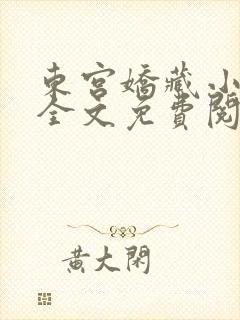 東宮嬌藏小
全文免費閱
黃大閑